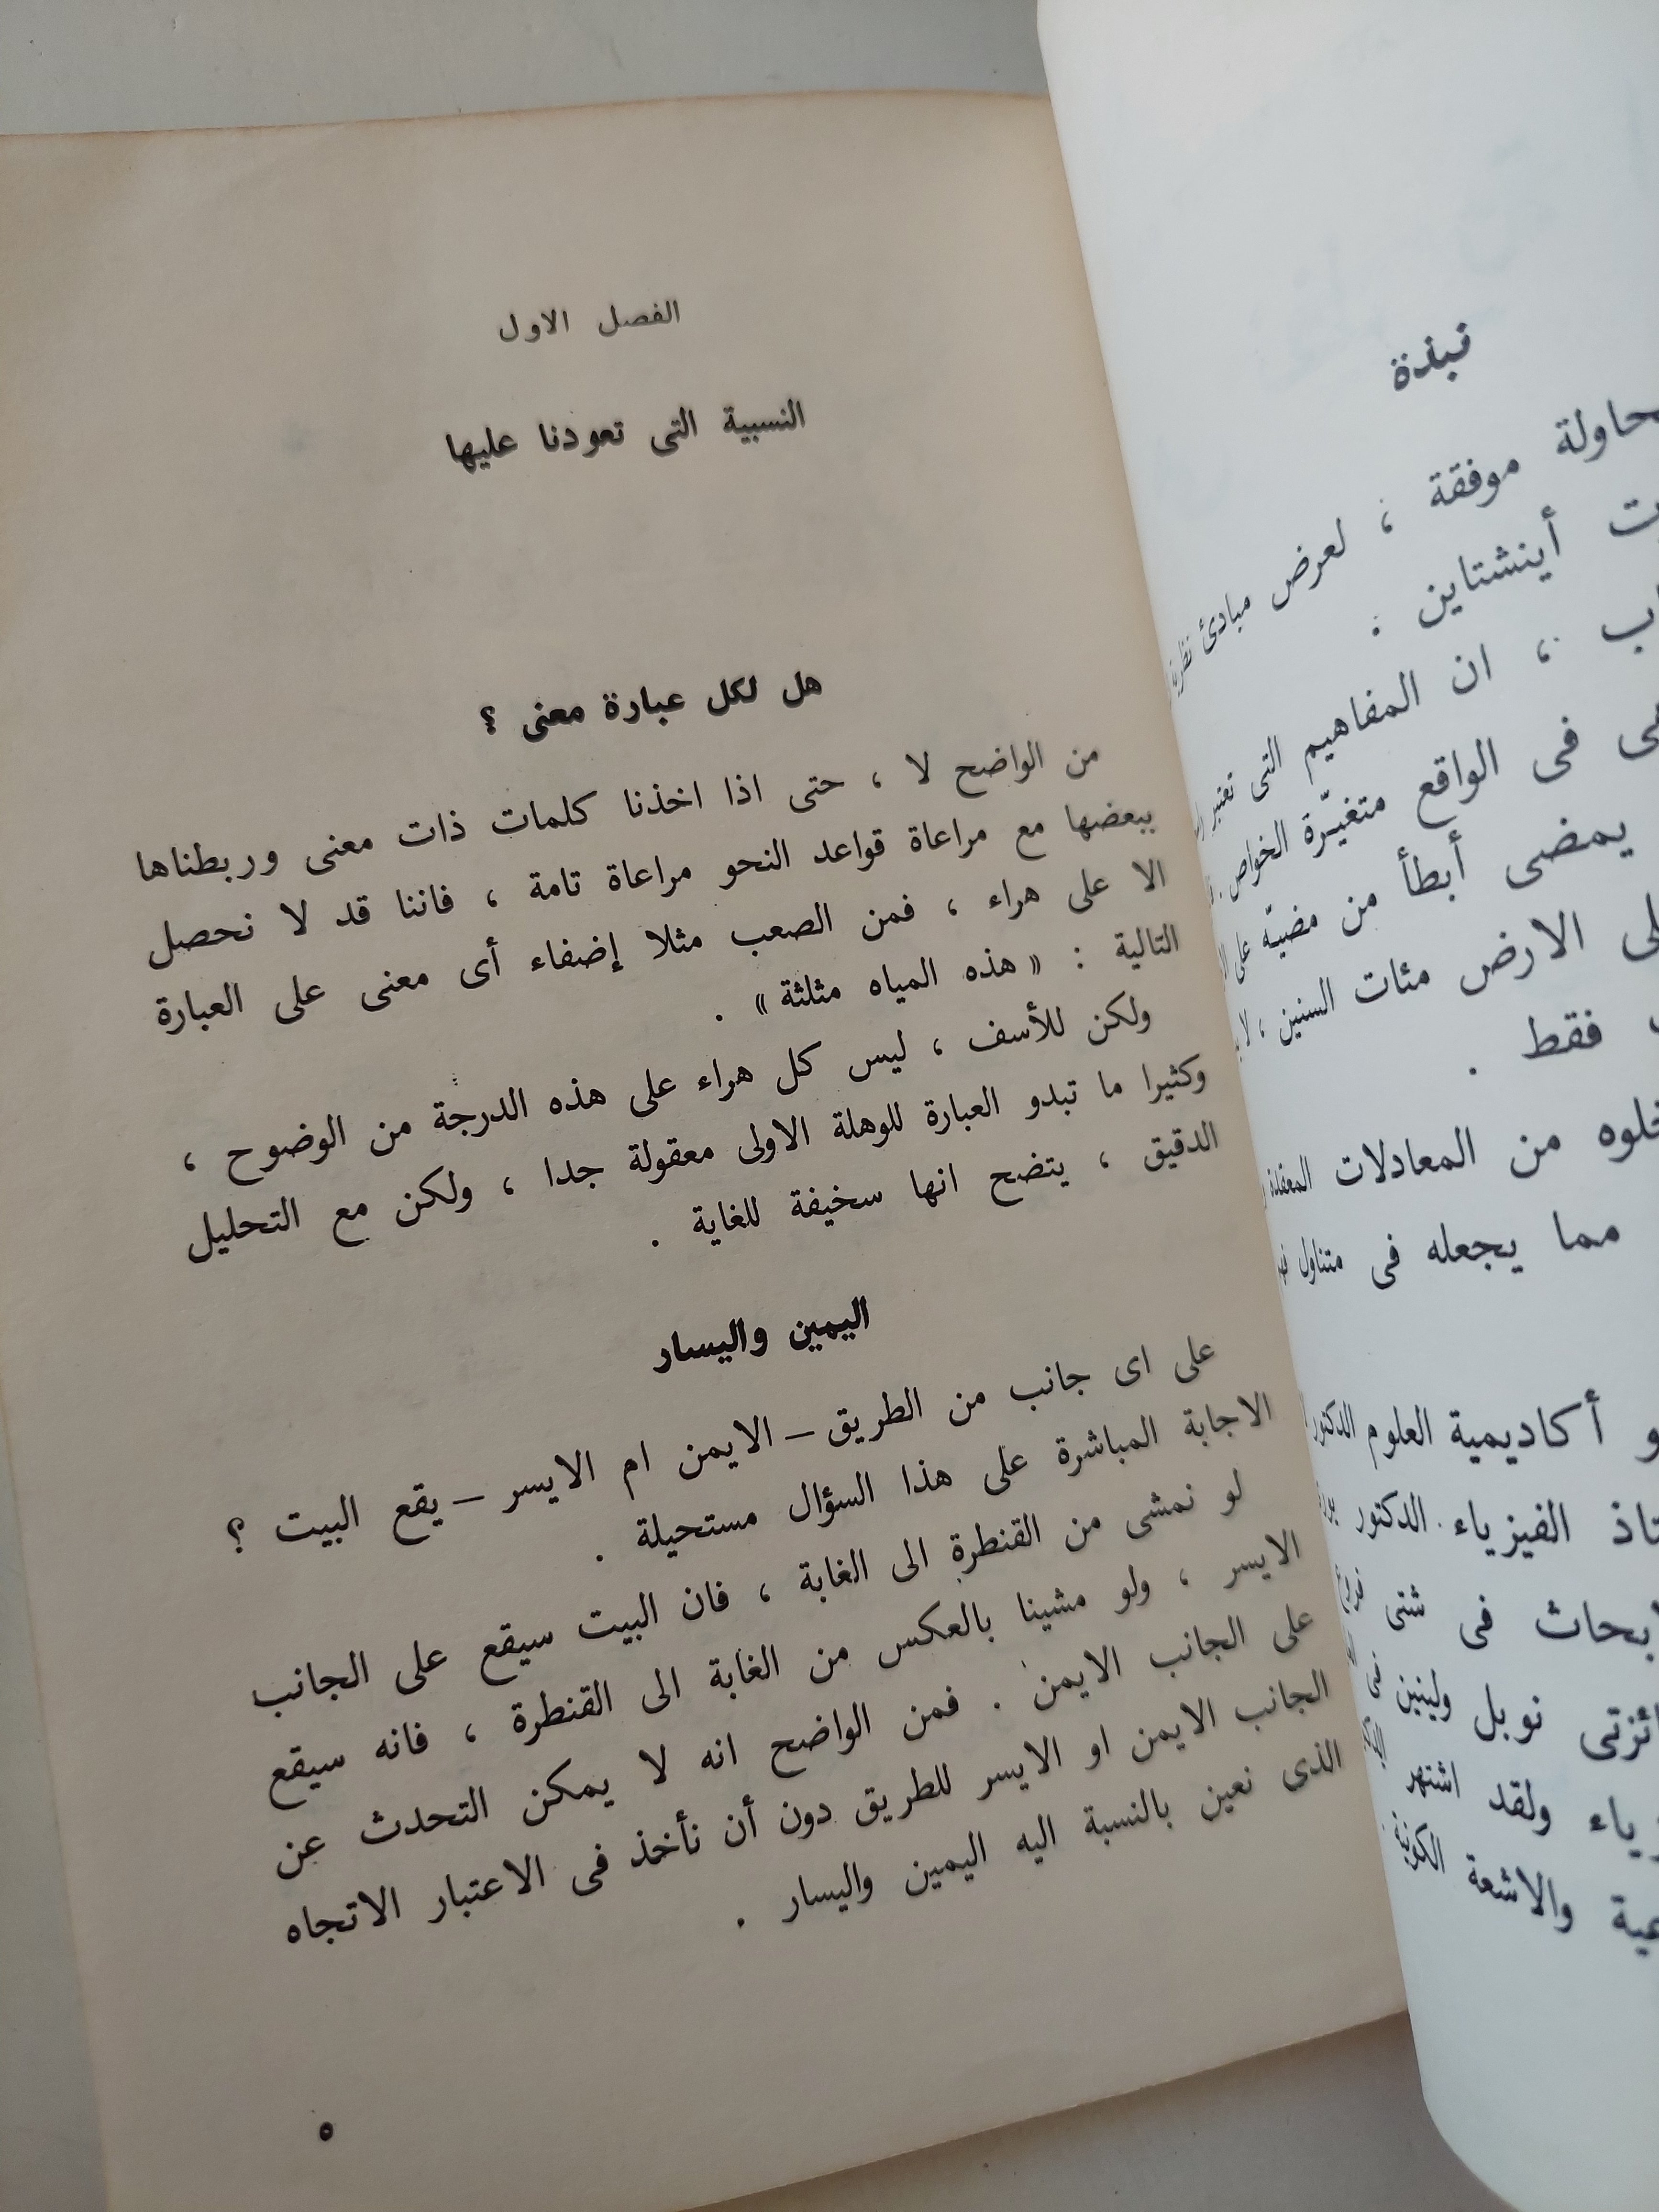 نبذة
حاولة موفقة ، لعرض مبادئ
أينشتاين .
، ان المفاهيم التى تعتبر
فى الواقع متغيّرة الخواص .
يمضى أبطأ من مضيّه على
الارض مئات السنين ، لا
فقط .
من المعادلات المعقدة
مما يجعله فى متناول
أكاديمية العلوم الدكتور
الفيزياء . الدكتور
فى شتى فروع
نوبل ولينين فى
ولقد اشتهر
والاشعة الكونية
الفصل الاول
النسبية التى تعودنا عليها
هل لكل عبارة معنى ؟
من الواضح لا ، حتى اذا اخذنا كلمات ذات معنى وربطناها
ببعضها مع مراعاة قواعد النحو مراعاة تامة ، فاننا قد لا نحصل
الا على هراء ، فمن الصعب مثلا إضفاء أى معنى على العبارة
التالية : « هذه المياه مثلثة » .
ولكن للأسف ، ليس كل هراء على هذه الدرجة من الوضوح ،
وكثيرا ما تبدو العبارة للوهلة الاولى معقولة جدا ، ولكن مع التحليل
الدقيق ، يتضح انها سخيفة للغاية .
اليمين واليسار
على اى جانب من الطريق – الايمن ام الايسر – يقع البيت ؟
الاجابة المباشرة على هذا السؤال مستحيلة .
لو نمشى من القنطرة الى الغابة ، فان البيت سيقع على الجانب
الايسر ، ولو مشينا بالعكس من الغابة الى القنطرة ، فانه سيقع
على الجانب الايمن . فمن الواضح انه لا يمكن التحدث عن
الجانب الايمن او الايسر للطريق دون أن نأخذ فى الاعتبار الاتجاه
الذى نعين بالنسبة اليه اليمين واليسار .
٥